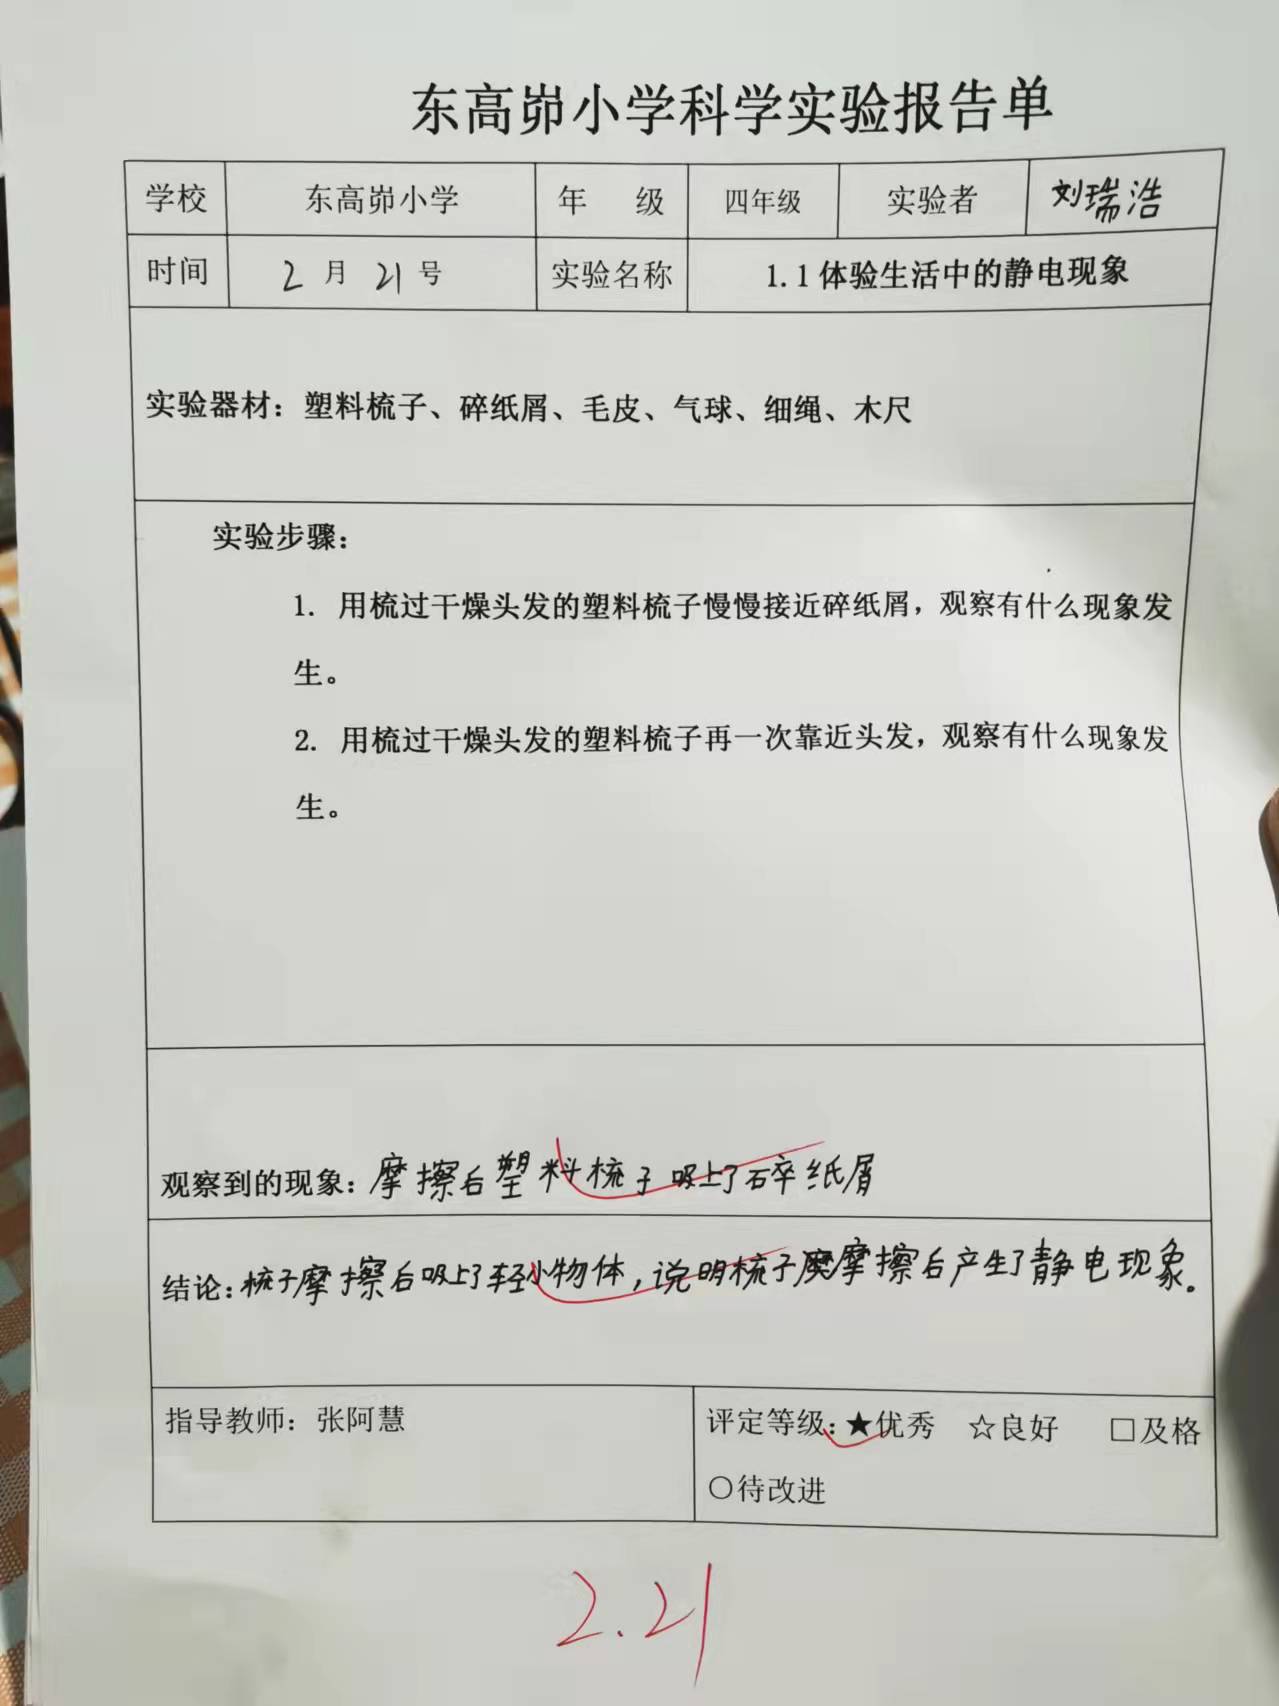 东高峁小学科学实验报告单
学校 东高峁小学 年 级 四年级 实验者 刘瑞浩
时间 2月21号 实验名称 1.1体验生活中的静电现象
实验器材：塑料梳子、碎纸屑、毛皮、气球、细绳、木尺
实验步骤：
1. 用梳过干燥头发的塑料梳子慢慢接近碎纸屑，观察有什么现象发
生。
2. 用梳过干燥头发的塑料梳子再一次靠近头发，观察有什么现象发
生。
观察到的现象：摩擦后塑料梳子吸上了碎纸屑
结论：梳子摩擦后吸上了轻小物体，说明梳子摩擦后产生了静电现象。
指导教师：张阿慧 评定等级：★优秀 ☆良好 □及格
○待改进
2.21